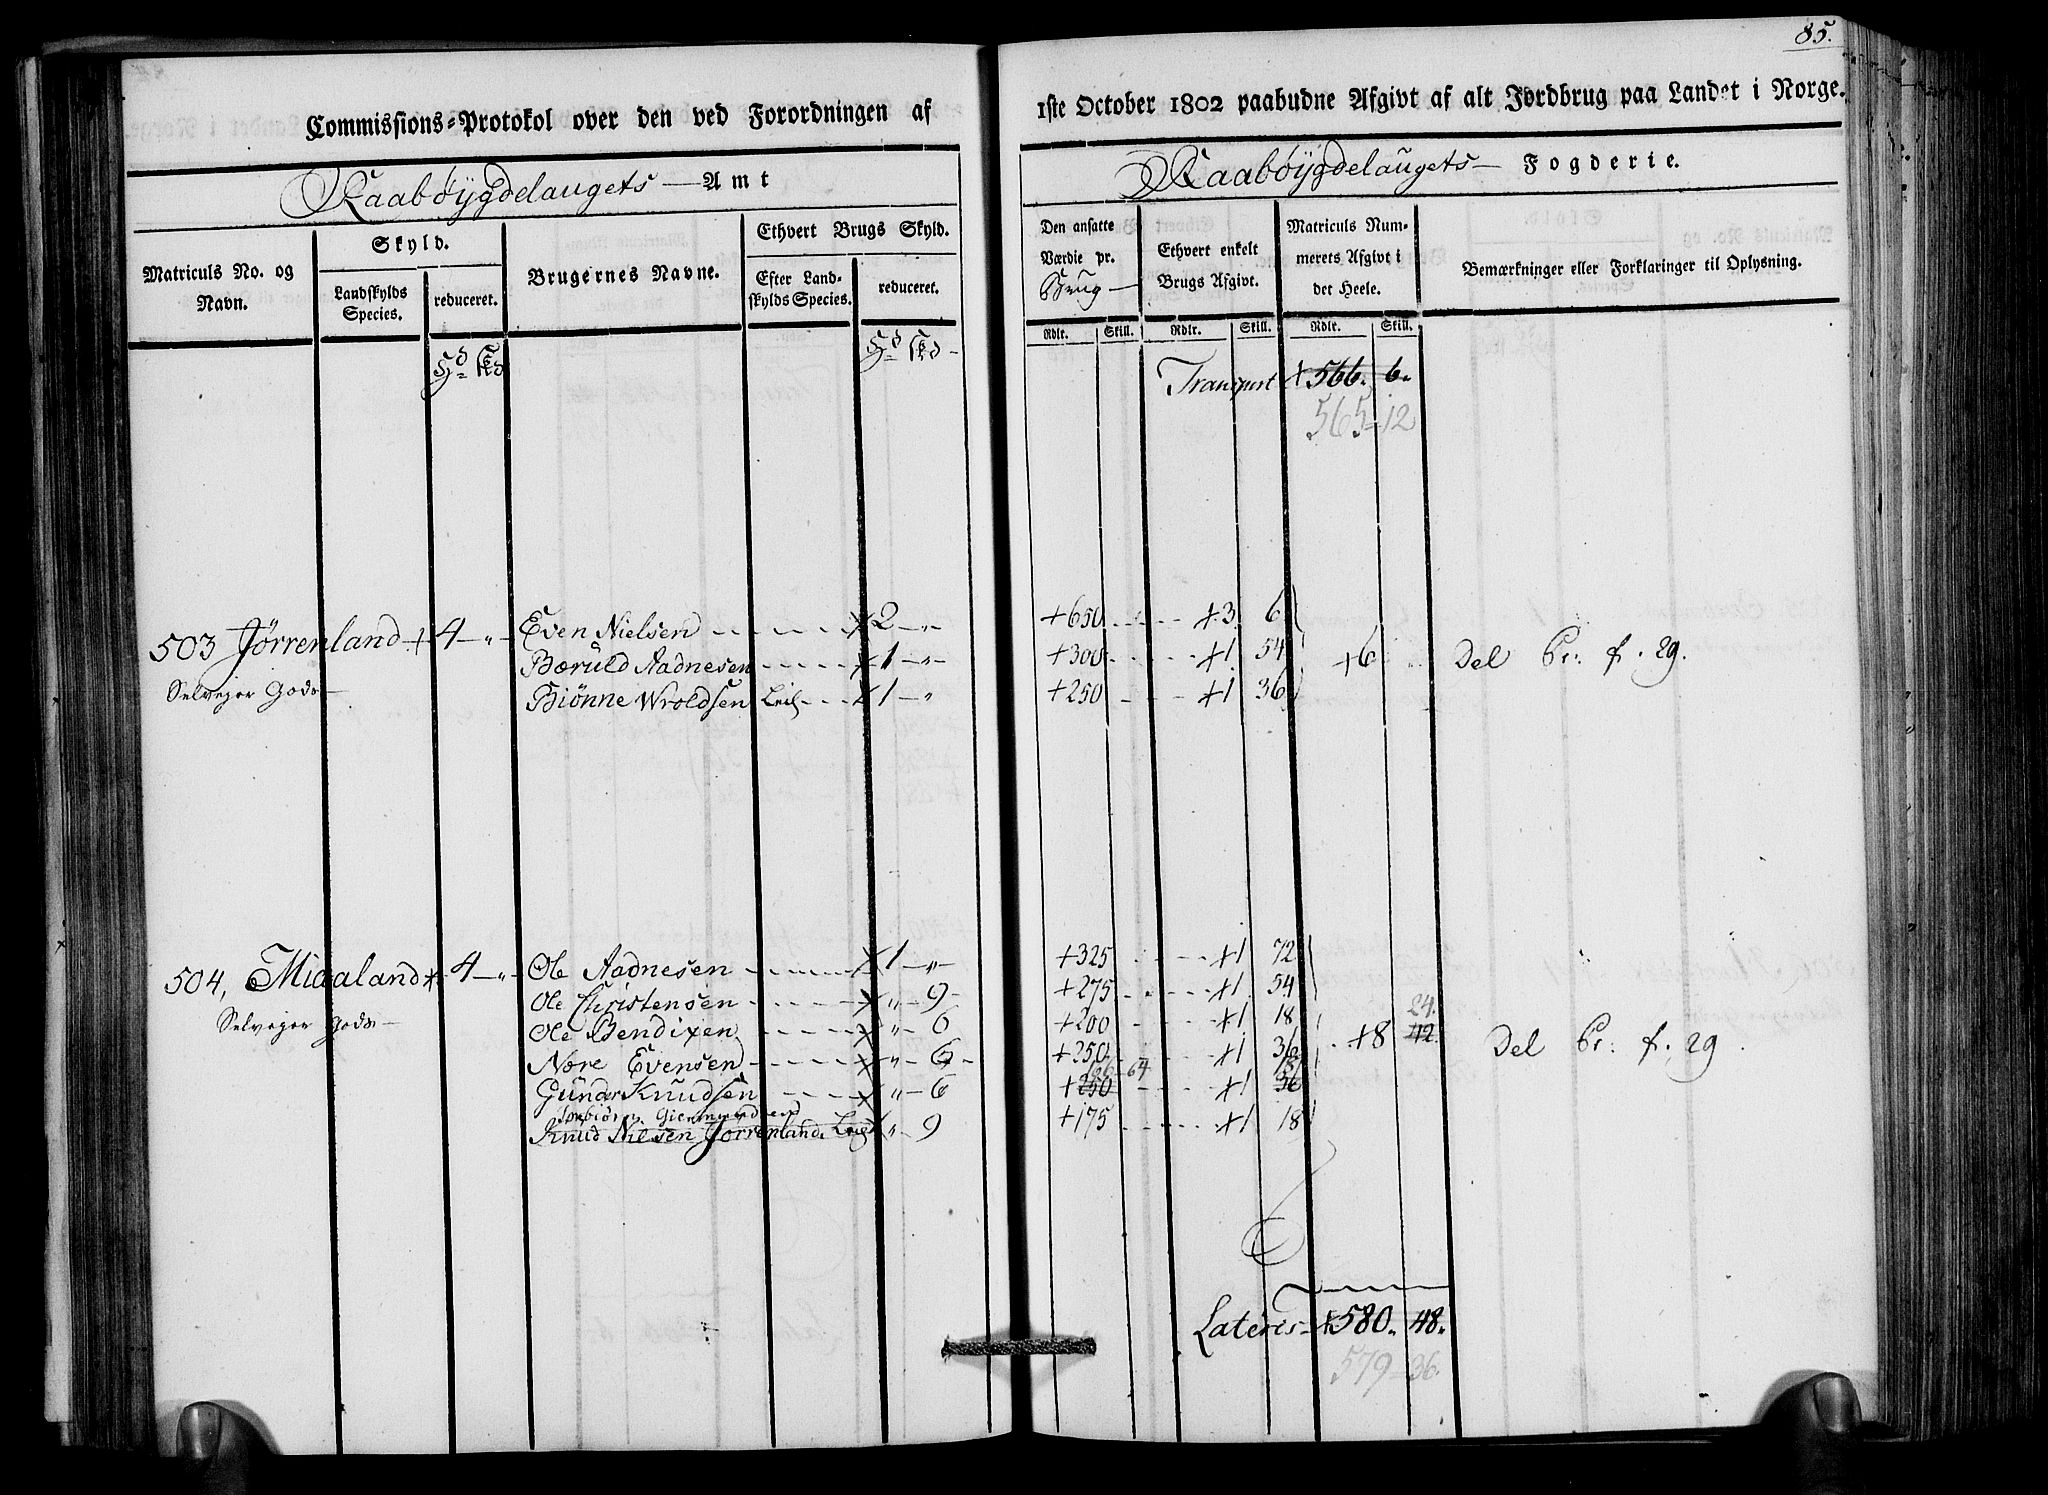 85.
Commissions-Protokol over den ved Forordningen af
1ste October 1802 paabudne Afgivt af alt Jordbrug paa Landet i Norge.
Raabøygdelaugets Amt
Raabøygdelaugets Fogderie.
Matriculs No. og Navn.
Skyld.
Landskylds Species.
reduceret.
Brugernes Navne.
Ethvert Brugs Skyld.
Efter Landskylds Species.
reduceret.
Den ansatte Værdie pr. Brug
Ethvert enkelt Brugs Afgivt.
Matriculs Nummerets Afgivt i det Heele.
Bemærkninger eller Forklaringer til Oplysning.
Rdlr. Skill. Rdlr. Skill. Rdlr. Skill.
Transport + 566. 6.
565-12
503 Jørrenland + 4 - „ - Even Nielsen + 2 - „ +650 +3 6
Bæruld Aadnesen + 1 - „ +300 +1 54 +6 Del Pr: f. 29.
Selveyer Gods - Biønne Wroldsen Leil + 1 - „ +250 +1 36
504, Midaland + 4 - „ - Ole Aadnesen + 1 - „ - +325 +1 72
Ole Christensen + „ - 9 - +275 +1 54
Selveyer Gods - Ole Bendixen + „ - 6 +200 +1 18 24.
Nore Evensen + „ - 6 - +250 +1 36 +8 42. Del Pr: f. 29.
186-64 18
Gunar Knudsen + „ - 6 +250 +1 36
Torbiørn Giermundsen
Knud Nilsen Jørrenland Leil + „ - 9 +175 +1 18
Lateris + 580. 48.
579-36.